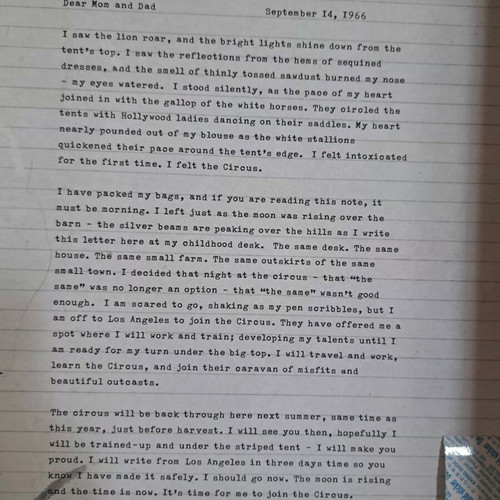 Dear Mom and Dad
September 14, 1966
I saw the lion roar, and the bright lights shine down from the
tent's top. I saw the reflections from the hems of sequined
dresses, and the smell of thinly tossed sawdust burned my nose
- my eyes watered. I stood silently, as the pace of my heart
joined in with the gallop of the white horses. They circled the
tents with Hollywood ladies dancing on their saddles. My heart
nearly pounded out of my blouse as the white stallions
quickened their pace around the tent's edge. I felt intoxicated
for the first time. I felt the Circus.
I have packed my bags, and if you are reading this note, it
must be morning. I left just as the moon was rising over the
barn - the silver beams are peaking over the hills as I write
this letter here at my childhood desk. The same desk. The same
house. The same small farm. The same outskirts of the same
small town. I decided that night at the circus - that "the
same" was no longer an option - that "the same" wasn't good
enough. I am scared to go, shaking as my pen scribbles, but I
am off to Los Angeles to join the Circus. They have offered me a
spot where I will work and train; developing my talents until I
am ready for my turn under the big top. I will travel and work,
learn the Circus, and join their caravan of misfits and
beautiful outcasts.
The circus will be back through here next summer, same time as
this year, just before harvest. I will see you then, hopefully I
will be trained-up and under the striped tent - I will make you
proud. I will write from Los Angeles in three days time so you
know I have made it safely. I should go now. The moon is rising
and the time is now. It's time for me to join the Circus.